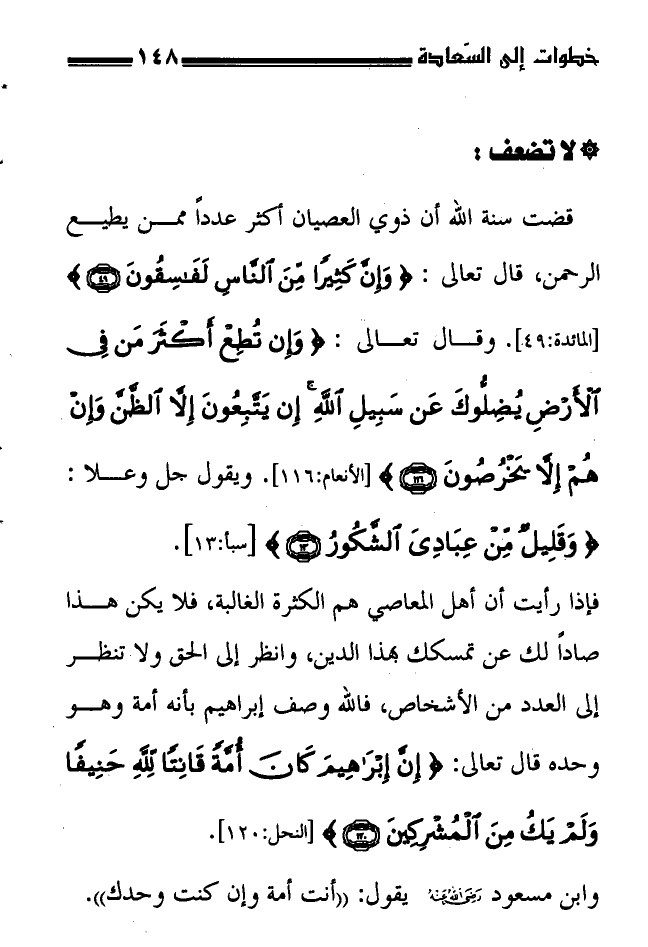 خطوات إلى السعادة ١٤٨
۞ لا تضعف :
قضت سنة الله أن ذوي العصيان أكثر عدداً ممـــن يطيـــع
الرحمن، قال تعالى : ﴿ وَإِنَّ كَثِيرًا مِّنَ ٱلنَّاسِ لَفَـٰسِقُونَ ۝٤٩ ﴾
[المائدة:٤٩]. وقـــال تعـــالى : ﴿ وَإِن تُطِعْ أَكْثَرَ مَن فِى
ٱلْأَرْضِ يُضِلُّوكَ عَن سَبِيلِ ٱللَّهِ ۚ إِن يَتَّبِعُونَ إِلَّا ٱلظَّنَّ وَإِنْ
هُمْ إِلَّا يَخْرُصُونَ ۝١١٦ ﴾ [الأنعام:١١٦]. ويقول جل وعـــلا :
﴿ وَقَلِيلٌ مِّنْ عِبَادِىَ ٱلشَّكُورُ ۝١٣ ﴾ [سبأ:١٣].
فإذا رأيت أن أهل المعاصي هم الكثرة الغالبة، فلا يكن هـــذا
صاداً لك عن تمسكك بهذا الدين، وانظر إلى الحق ولا تنظـــر
إلى العدد من الأشخاص، فالله وصف إبراهيم بأنه أمة وهـــو
وحده قال تعالى: ﴿ إِنَّ إِبْرَٰهِيمَ كَانَ أُمَّةً قَانِتًا لِّلَّهِ حَنِيفًا
وَلَمْ يَكُ مِنَ ٱلْمُشْرِكِينَ ۝١٢٠ ﴾ [النحل:١٢٠].
وابن مسعود رَضِيَ اللهُ عَنْهُ يقول: ((أنت أمة وإن كنت وحدك)).